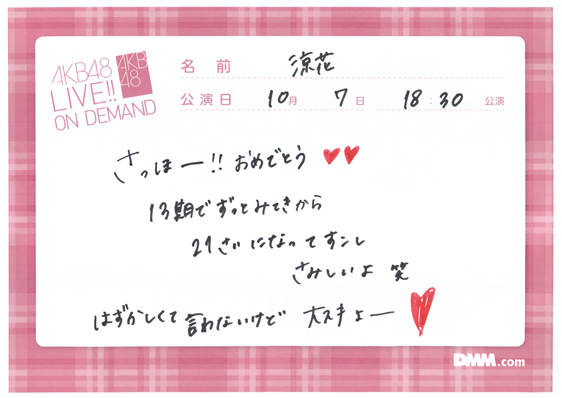 AKB48
LIVE!!
ON DEMAND
AKB
48
名前 涼花
公演日 10月 7日 18:30 公演
さっほー!! おめでとう
13期でずっとみてきたから
21さいになってすこし
さみしいよ 笑
はずかしくて言わないけど 大スキよー
DMM.com